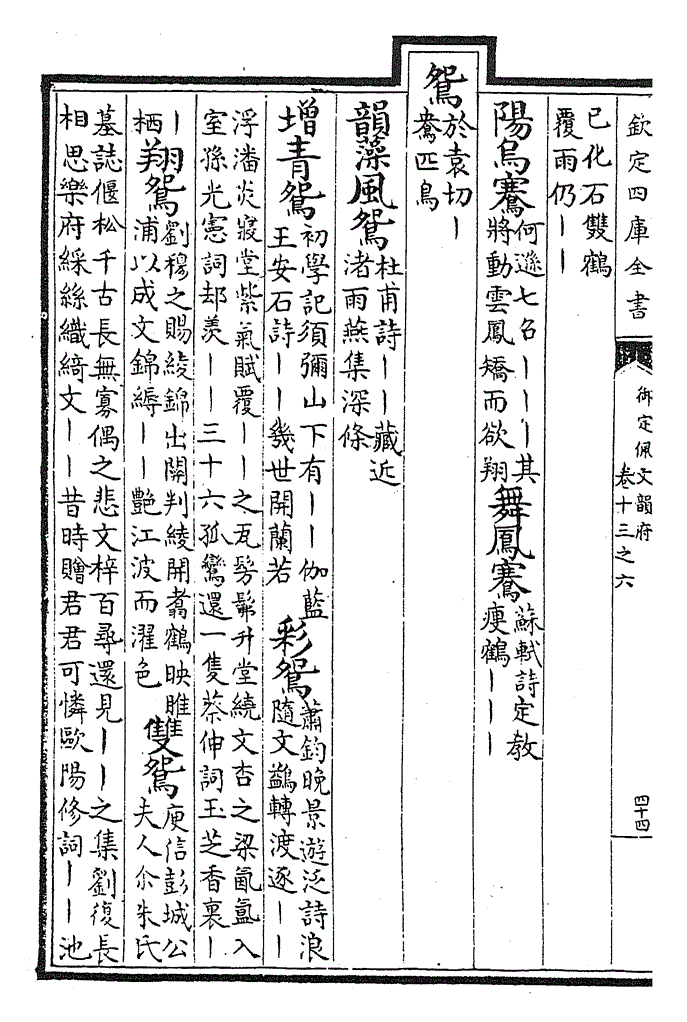 欽定四庫全書
御定佩文韻府
卷十三之六
四十四
已化石雙鶴
覆雨仍丨丨
陽烏騫
何遜七召丨丨丨其
將動雲鳳矯而欲翔
舞鳳騫
蘇軾詩定教
瘦鶴丨丨丨
鴛
於袁切丨
鴦匹鳥
韻藻風鴛
杜甫詩丨丨藏近
渚雨燕集深條
增青鴛
初學記須彌山下有丨丨伽藍
王安石詩丨丨幾世開蘭若
彩鴛
蕭鈞晚景遊泛詩浪
隨文鷁轉渡逐丨丨
浮潘炎寢堂紫氣賦覆丨丨之瓦髣髴升堂繞文杏之梁氤氳入
室孫光憲詞却羨丨丨三十六孤鸞還一隻蔡伸詞玉芝香裏丨
丨
栖
翔鴛
劉穆之賜綾錦出關判綾開翥鶴映睢
浦以成文錦縟丨丨艷江波而濯色
雙鴛
庾信彭城公
夫人尒朱氏
墓誌偃松千古長無寡偶之悲文梓百尋還見丨丨之集劉復長
相思樂府綵絲織綺文丨丨昔時贈君君可憐歐陽修詞丨丨池